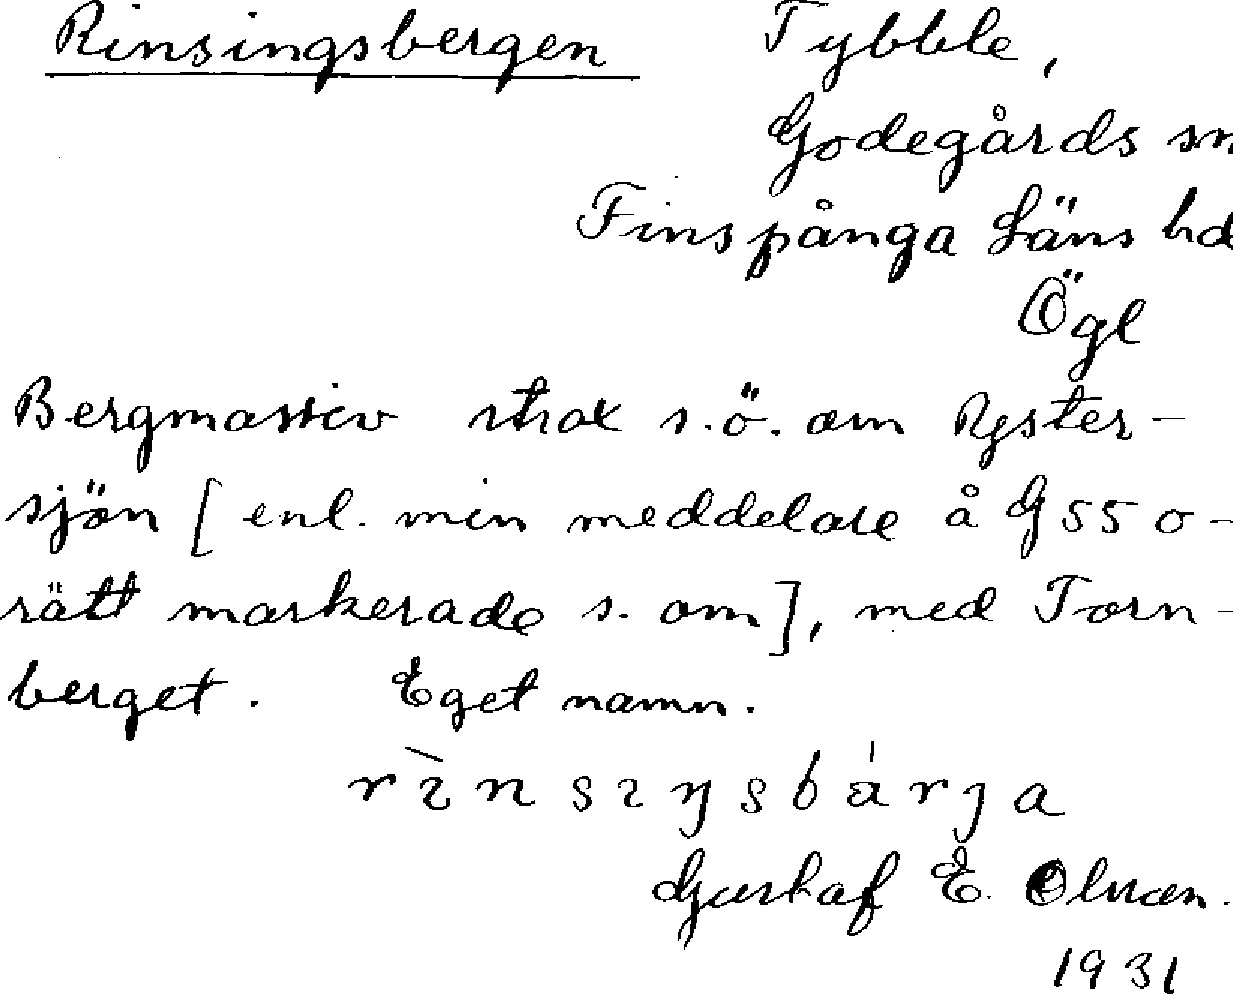 Rinsingsbergen Tybble,
Godegårds sn
Finspånga Läns hd
Ögl
Bergmassiv strax s.ö. om Ryster-
sjön [enl. min meddelare å G 55 o-
rätt markerade s. om], med Torn-
berget. Eget namn.
rìnsıŋsbárja
Gustaf E. Olson.
1931